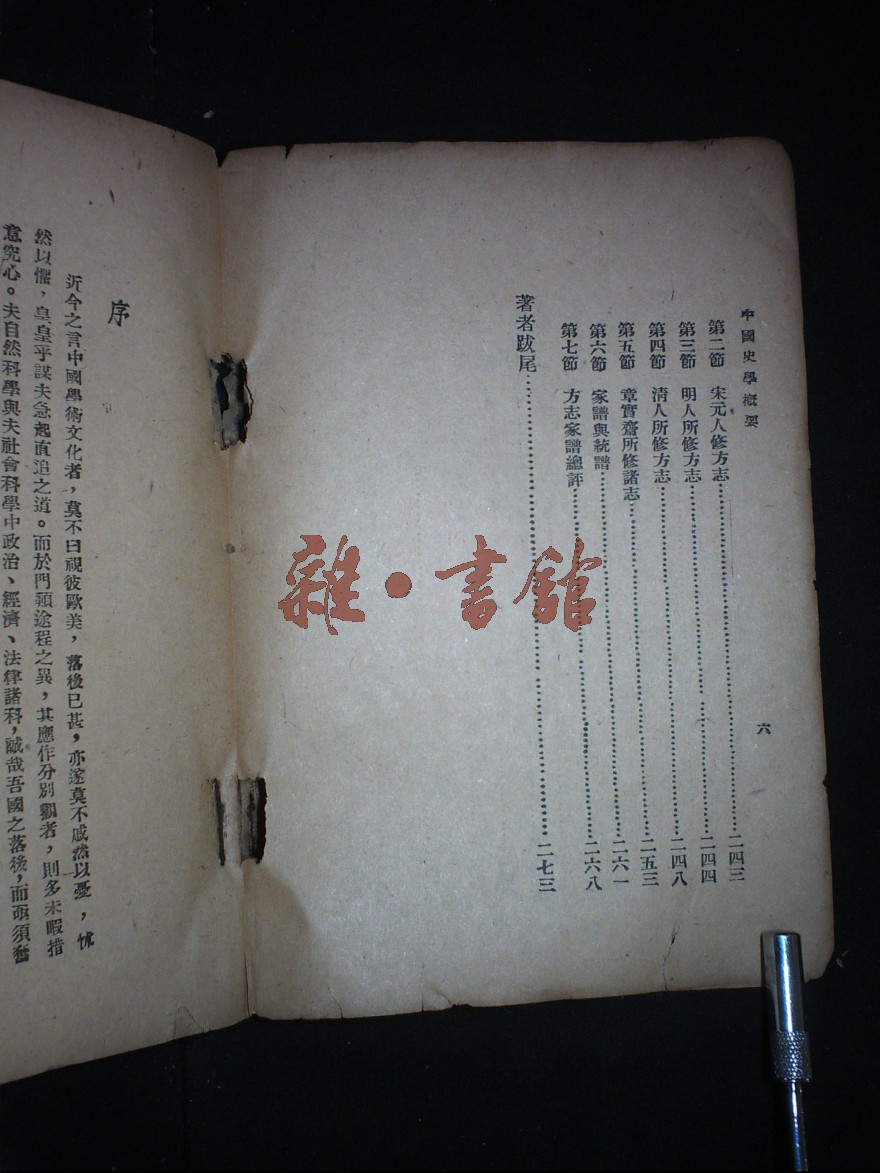 中國史學概要
六
第二節 宋元人修方志……二四三
第三節 明人所修方志……二四四
第四節 清人所修方志……二四八
第五節 章實齋所修諸志……二五三
第六節 家譜與統譜……二六一
第七節 方志家譜總評……二六八
著者跋尾……二七三
序
近今之言中國學術文化者，莫不曰視彼歐美，落後已甚，亦遂莫不戚然以憂，怵
然以懼，皇皇乎謀夫急起直追之道。而於門類途程之異，其應作分別觀者，則多未暇措
意究心。夫自然科學與夫社會科學中政治、經濟、法律諸科，誠哉吾國之落後，而亟須奮
雜·書館